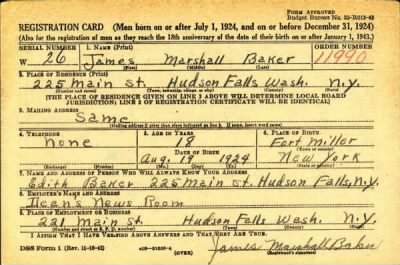 FORM APPROVED
Budget Bureau No. 33-R019-42
REGISTRATION CARD (Men born on or after July 1, 1924, and on or before December 31, 1924)
(Also for the registration of men as they reach the 18th anniversary of the date of their birth on or after January 1, 1943.)
SERIAL NUMBER 1. NAME (Print) ORDER NUMBER
W 26 James Marshall Baker 11990
2. PLACE OF RESIDENCE (Print)
225 Main St. Hudson Falls Wash. N.Y.
(THE PLACE OF RESIDENCE GIVEN ON LINE 2 ABOVE WILL DETERMINE LOCAL BOARD
JURISDICTION; LINE 2 OF REGISTRATION CERTIFICATE WILL BE IDENTICAL)
3. MAILING ADDRESS
Same
4. TELEPHONE 5. AGE IN YEARS 6. PLACE OF BIRTH
none 18 Fort Miller
DATE OF BIRTH
Aug. 19 1924 New York
7. NAME AND ADDRESS OF PERSON WHO WILL ALWAYS KNOW YOUR ADDRESS
Edith Baker 225 Main St. Hudson Falls, N.Y.
8. EMPLOYER'S NAME AND ADDRESS
Dean's News Room
9. PLACE OF EMPLOYMENT OR BUSINESS
221 Main St. Hudson Falls Wash. N.Y.
I AFFIRM THAT I HAVE VERIFIED ABOVE ANSWERS AND THAT THEY ARE TRUE.
DSS Form 1 (Rev. 11-16-42) James Marshall Baker
(Registrant's signature)